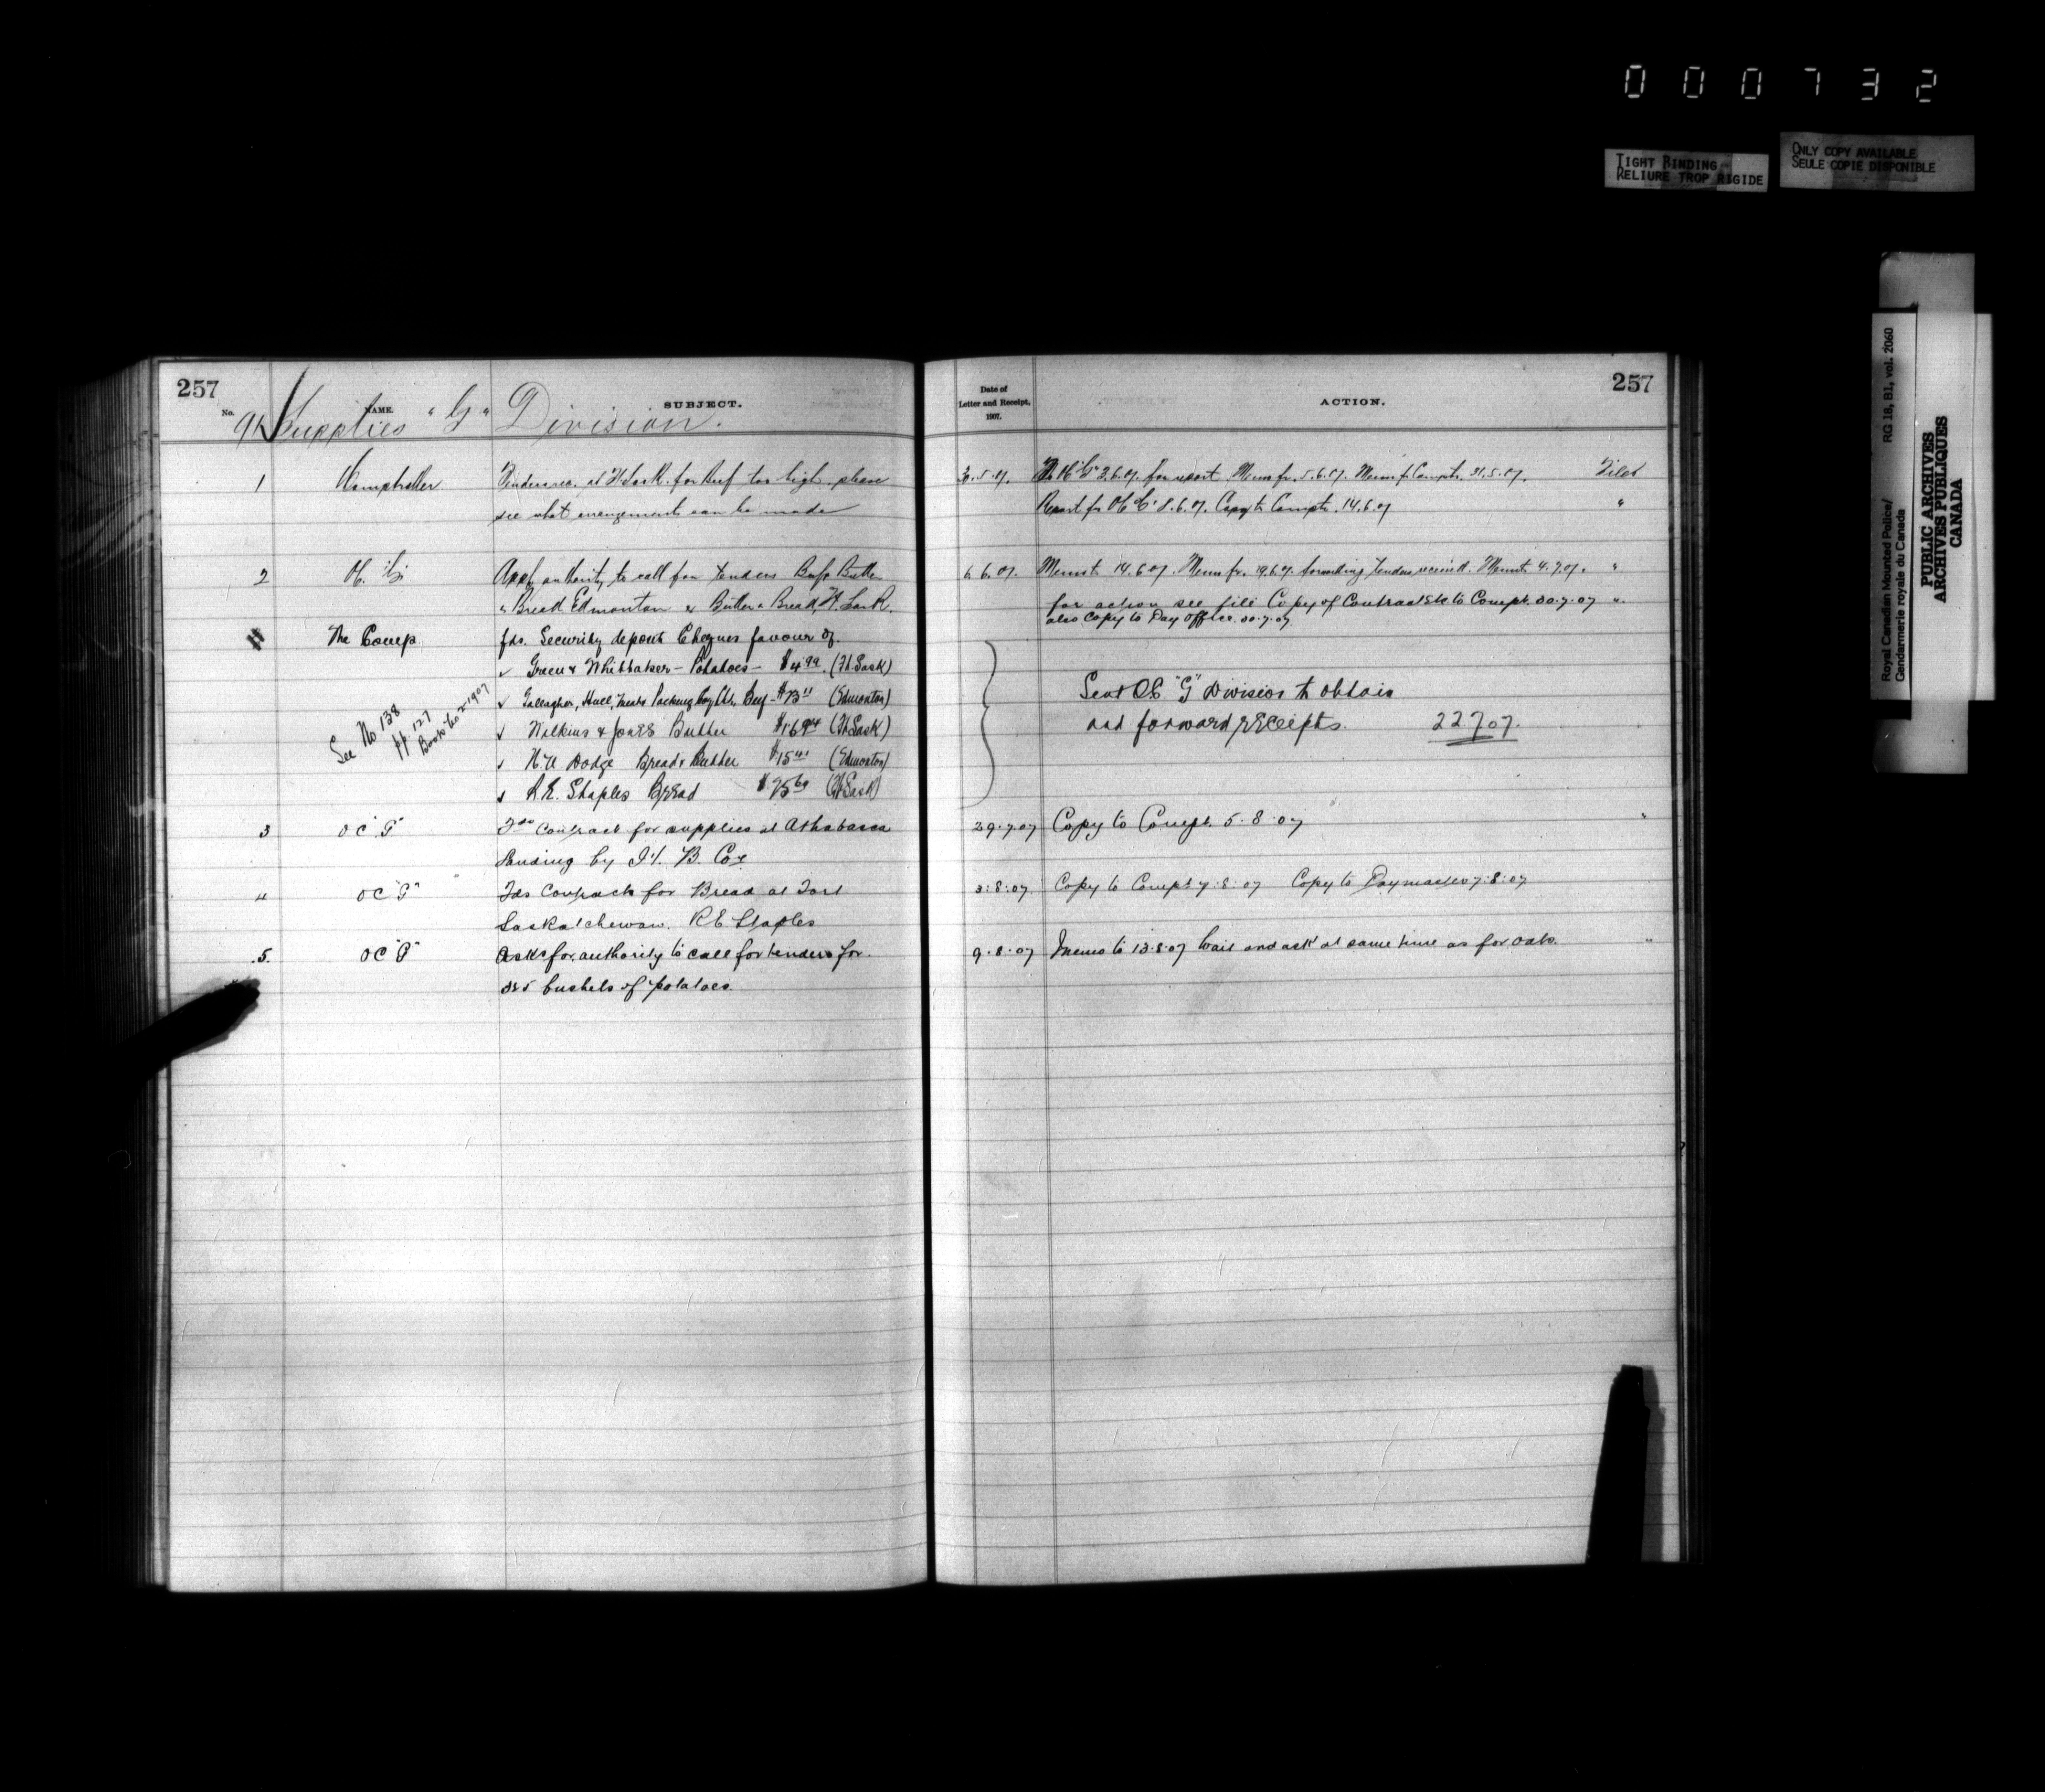 000732
TIGHT BINDING
RELIURE TROP RIGIDE
ONLY COPY AVAILABLE
SEULE COPIE DISPONIBLE
Royal Canadian Mounted Police/ RG 18, B1, vol. 2060
Gendarmerie royale du Canada
PUBLIC ARCHIVES
ARCHIVES PUBLIQUES
CANADA
257
No. NAME. SUBJECT.
Supplies "G" Division.
1 Comptroller Tenders rec. at Ft Sask. for Beef too high please
see what arrangements can be made
2 OC. "G" Appl authority to call for tenders Beef Butter
" Bread Edmonton & Butter & Bread, Ft. Sask.
The Comp. fds. Security deposit Cheques favour of.
Green & Whittaker - Potatoes - $4.99 (Ft. Sask)
Gallagher, Hull, Meat Packing Coy Ltd. Beef - $73.11 (Edmonton)
Wilkins & Jones Butter $16.94 (Ft Sask)
H.A Dodge Bread & Butter $15.41 (Edmonton)
R.E. Staples Bread $25.60 (Ft Sask)
See No 138
pp 127
Book No 2 1907
3 OC "G" Fds Contract for supplies at Athabasca
Landing by H. B. Co.
4 OC "G" Fds Contracts for Bread at Fort
Saskatchewan. R.E. Staples
5. OC "G" Asks for authority to call for tenders for
325 bushels of potatoes.
257
Date of
Letter and Receipt,
1907.
ACTION.
30.5.07. To OC "G" 3.6.07. for report. Memo fr. 5.6.07. Memo fr Compt. 31.5.07. Filed
Report fr OC "G" 8.6.07. Copy to Compt. 14.6.07 "
6.6.07. Memo to 14.6.07. Memo fr. 19.6.07. forwarding tenders received. Memo to 4.7.07. "
for action see file Copy of Contracts to Compt. 30.7.07 "
also Copy to Pay Office. 30.7.07
Send OC "G" Division to obtain
and forward receipts. 22707.
29.7.07 Copy to Compt. 5.8.07 "
3:8:07 Copy to Compt 7:8:07 Copy to Paymaster 7:8:07
9.8.07 Memo to 13.8.07 Wait and ask at same time as for oats. "